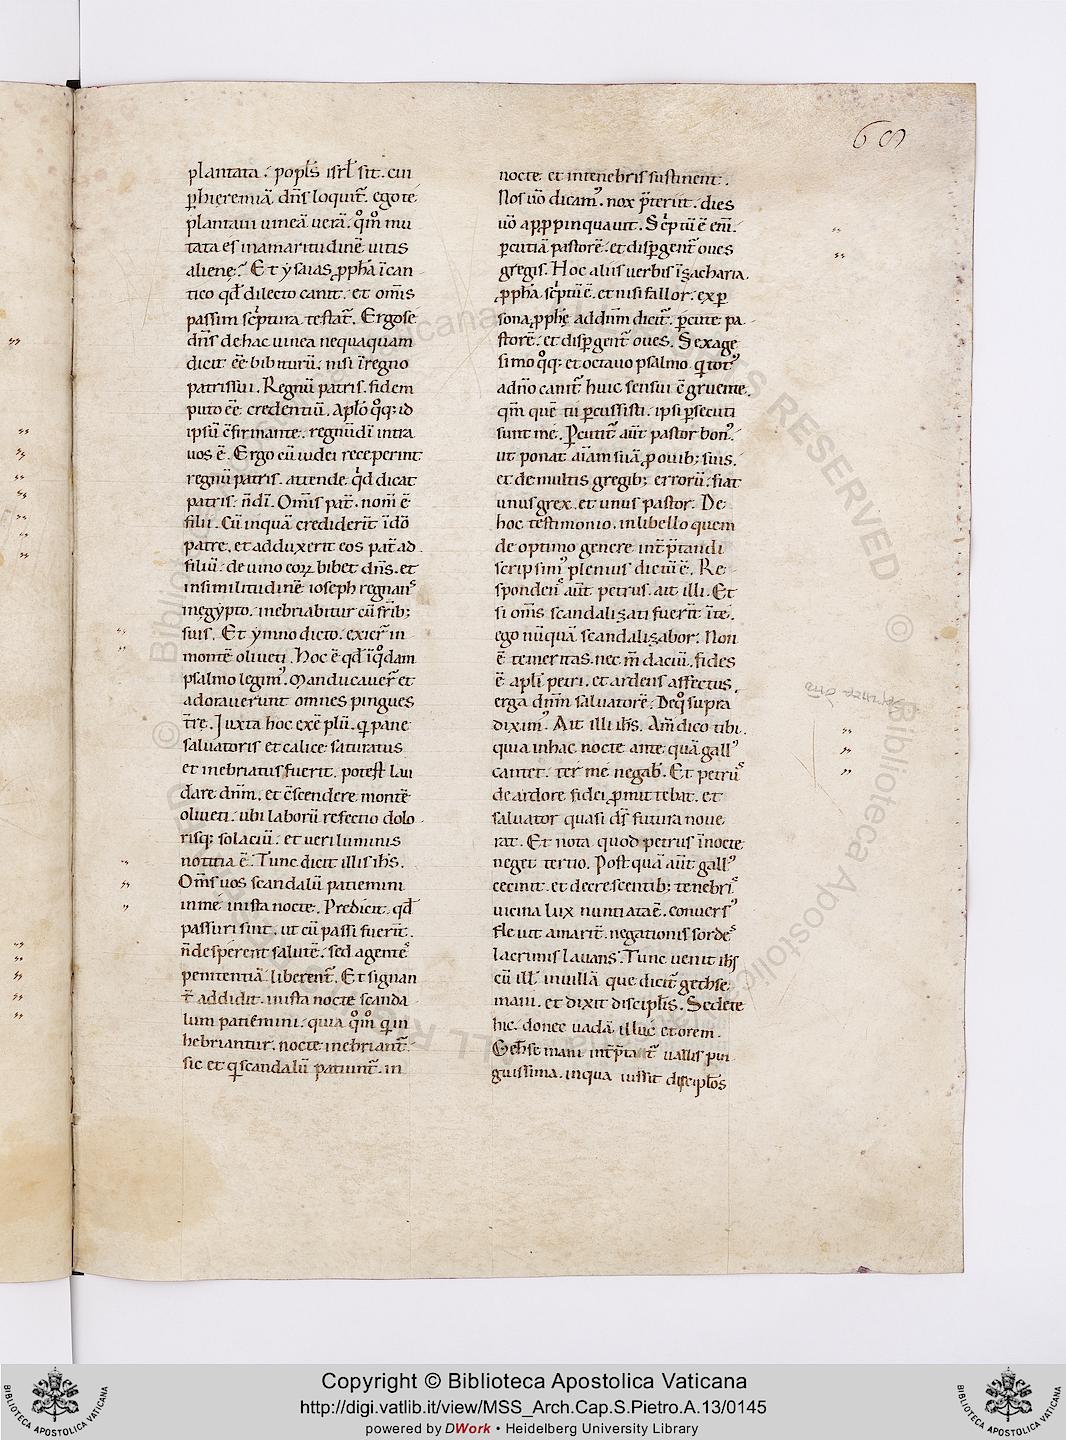 68
plantata. popłs isrł sit. cui
ꝑhieremiā dn̄s loquit̄. ego te
plantaui uineā uerā. qͦm̄ mu
tata es inamaritudinē uitis
aliene. Et ysaias ꝓph̄a īcan
tico qđ dilecto canit. et om̄s
passim sc̄ptura testat̄. Ergo se
dn̄s de hac uinea nequaquam
dicit eē bibiturū. nisi īregno
patris sui. Regnū patris. fidem
puto eē credentiū. apło qͦq; id
ipsū cfirmante. regnū dī intra
uos ē. Ergo cū iudei receperint
regnū patris. attende. qͥd dicat
patris. n̄ dī. Om̄s pat̄. nom̄ ē
filii. Cū inquā crediderit̄ īdō
patre. et adduxerit eos pat̄ ad
filiū. de uino eoꝝ bibet dn̄s. et
insimilitudinē ioseph regnans
inegypto. inebriabitur cū fr̄ib;
suis. Et ymno dicto. exier̄ in
montē oliueti. Hoc ē qđ īqͦdam
psalmo legimꝰ. Manducauer̄ et
adorauerunt omnes pingues
t̄re. Iuxta hoc exē plū. qͥ pane
saluatoris et calice saturatus
et inebriatus fuerit. potest lau
dare dn̄m. et c̄scendere montē
oliueti. ubi laborū refectio dolo
risq; solaciū. et ueri luminis
notitia ē. Tunc dicit illis ih̄s.
Om̄s uos scandalū patiemini
in me inista nocte. Predicit qđ
passuri sint. ut cū passi fuerit̄.
n̄ desperent salutē. sed agentes
penitentiā liberent̄. Et signan
t̄ addidit. inista nocte scanda
lum patiēmini. quia qͦm̄ qͥ in
hebriantur. nocte inebriant̄.
sic et qͥ scandalū patiunt̄. in
nocte et intenebris sustinent.
Nos uō dicamꝰ. nox p̄terut. dies
uō apꝓpinquauit. Sc̄ptū ē eni.
ꝑcutiā pastorē. et disꝑgent̄ oues
gregis. Hoc aliis uerbis īzacharia
ꝓph̄a sc̄ptū ē. et nisi fallor. ex ꝑ
sona ꝓphę ad dn̄m dicit̄. ꝑcute pa
storē. et disꝑgent̄ oues. Sexage
simo qͦq; et octauo psalmo. qͥ totꝰ
a dn̄o canit̄ huic sensui c̄gruente.
qm̄ quē tu ꝑcussisti. ipsi ꝑsecuti
sunt me. Ꝑcutit̄ aūt pastor bonꝰ.
ut ponat aīam suā ꝓ ouib; suis.
et de multis gregib; errorū. fiat
unus grex. et unus pastor. De
hoc testimonio. in libello quem
de optimo genere int̄p̄tandi
scripsimꝰ plenius dictū ē. Re
spondens aūt petrus. ait illi. Et
si om̄s scandalizati fuerit̄ īte.
ego nūquā scandalizabor. Non
ē temeritas. nec m̄daciū. fides
ē apłi petri. et ardens affectus.
erga dn̄m saluatorē. De qͦ supra
diximꝰ. Ait illi ih̄s. Am̄ dico tibi.
quia in hac nocte ante quā gallꝰ
cantet. ter me negab̄. Et petrus
de ardore fidei ꝓmittebat. et
saluator quasi dś futura noue
rat. Et nota quod petrus īnocte
neget tertio. Post quā aūt gallꝰ
cecinit. et decrescentib; tenebris
uicina lux nuntiata ē. conuersꝰ
fleuit amarit̄. negationis sordes
lacrimis lauans. Tunc uenit ih̄s
cū illis inuillā que dicit̄ gethse
mani. et dixit discipłis. Sedete
hic. donec uadā illuc et orem.
Geth̄semani int̄p̄tat̄ uallis pin
guissima. inqua iussit discipłos
Copyright © Biblioteca Apostolica Vaticana
http://digi.vatlib.it/view/MSS_Arch.Cap.S.Pietro.A.13/0145
powered by DWork • Heidelberg University Library
BIBLIOTECA APOSTOLICA VATICANA
BIBLIOTECA APOSTOLICA VATICANA